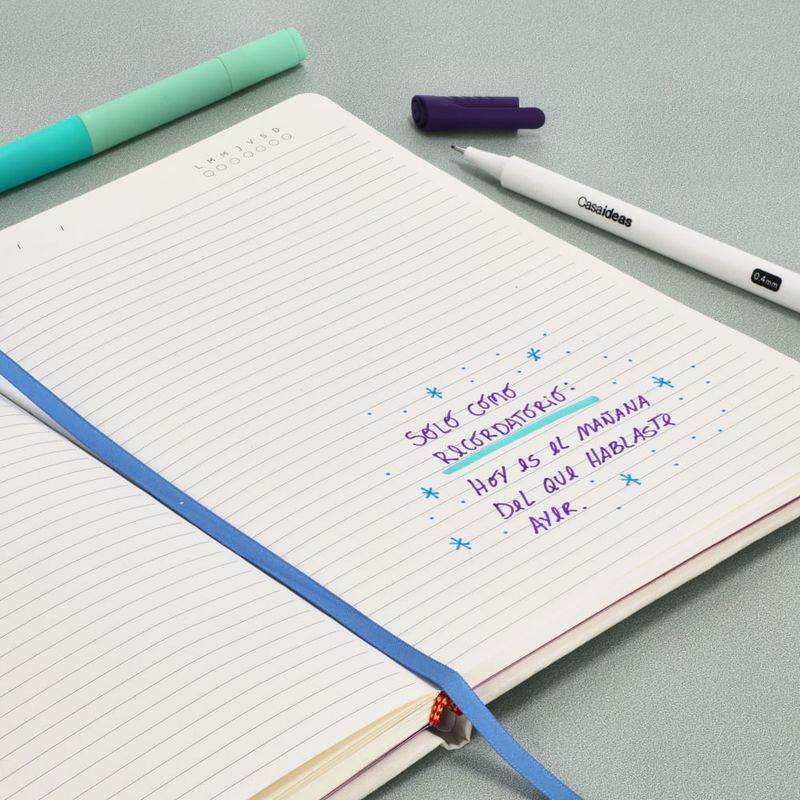 L M M J V S D
Casaideas
0.4mm
SOLO COMO
RECORDATORIO:
HOY ES EL MAÑANA
DEL QUE HABLASTE
AYER.